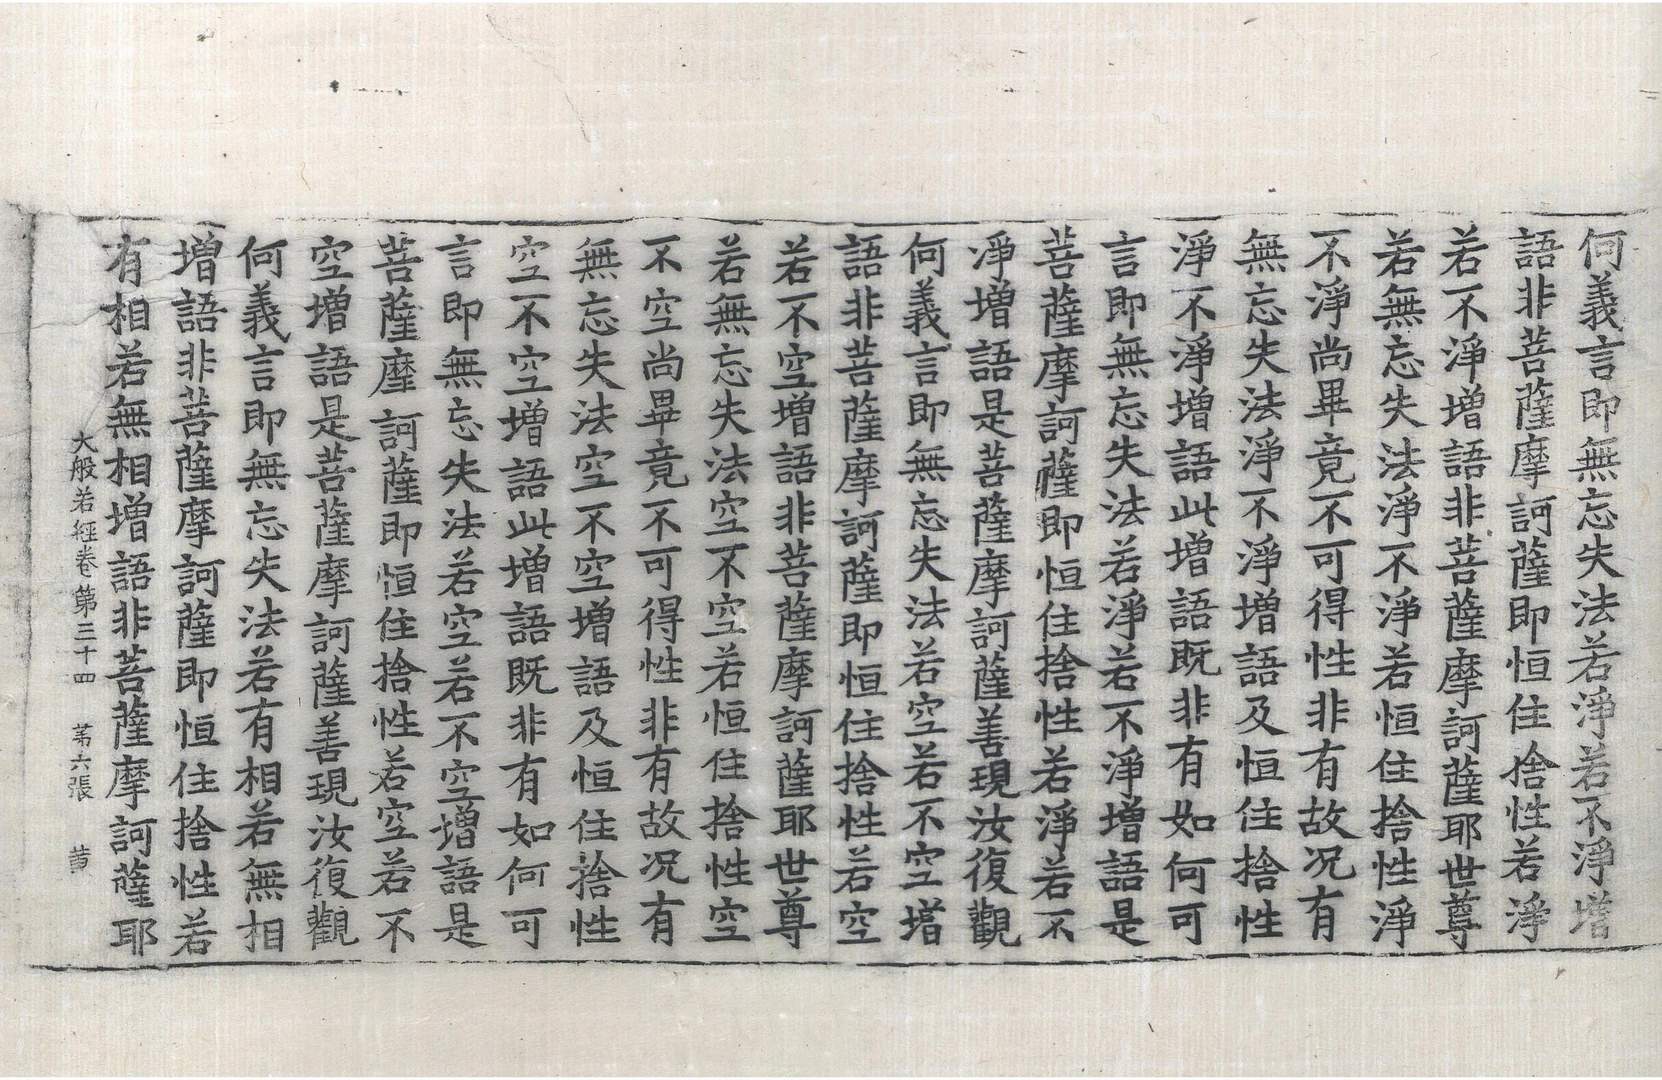 何義言即無忘失法若淨若不淨增
語非菩薩摩訶薩即恒住捨性若淨
若不淨增語非菩薩摩訶薩耶世尊
若無忘失法淨不淨若恒住捨性淨
不淨尚畢竟不可得性非有故况有
無忘失法淨不淨增語及恒住捨性
淨不淨增語此增語既非有如何可
言即無忘失法若淨若不淨增語是
菩薩摩訶薩即恒住捨性若淨若不
淨增語是菩薩摩訶薩善現汝復觀
何義言即無忘失法若空若不空增
語非菩薩摩訶薩即恒住捨性若空
若不空增語非菩薩摩訶薩耶世尊
若無忘失法空不空若恒住捨性空
不空尚畢竟不可得性非有故况有
無忘失法空不空增語及恒住捨性
空不空增語此增語既非有如何可
言即無忘失法若空若不空增語是
菩薩摩訶薩即恒住捨性若空若不
空增語是菩薩摩訶薩善現汝復觀
何義言即無忘失法若有相若無相
增語非菩薩摩訶薩即恒住捨性若
有相若無相增語非菩薩摩訶薩耶
大般若經卷第三十四 苐六張 黄